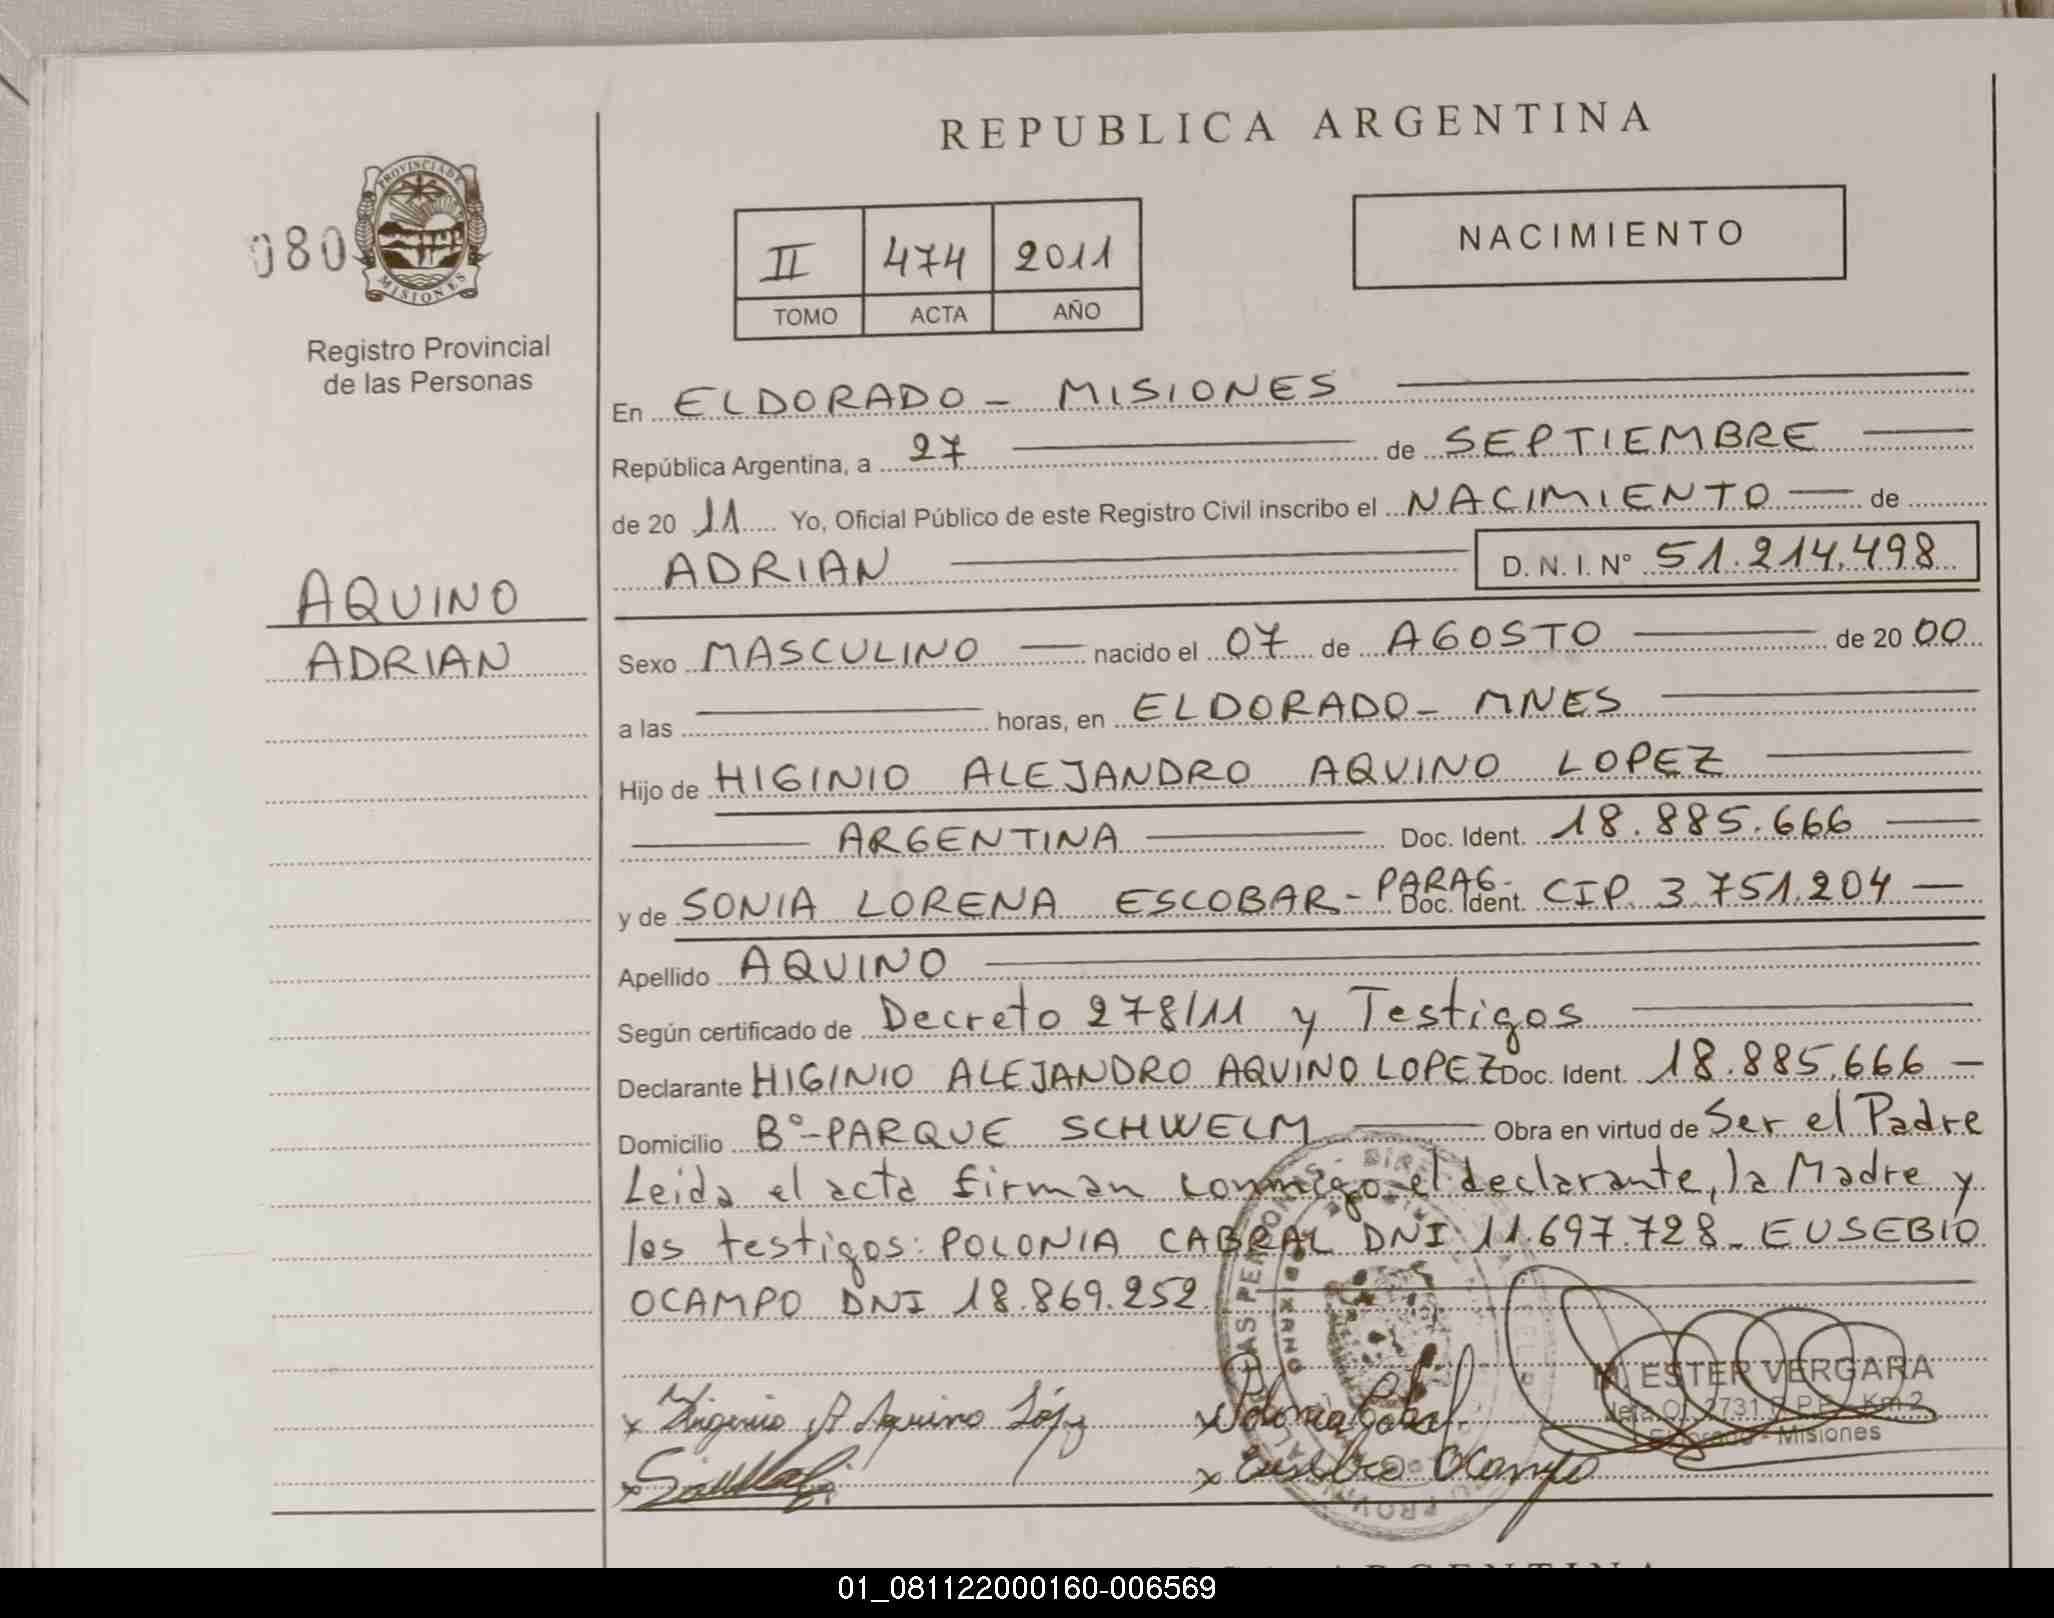 REPUBLICA ARGENTINA
080
PROVINCIA DE
MISIONES
Registro Provincial
de las Personas
II 474 2011
TOMO ACTA AÑO
NACIMIENTO
En ELDORADO - MISIONES
República Argentina, a 27 de SEPTIEMBRE
de 20 11 Yo, Oficial Público de este Registro Civil inscribo el NACIMIENTO de
ADRIAN D. N. I. N° 51.214.498
AQUINO
ADRIAN
Sexo MASCULINO nacido el 07 de AGOSTO de 20 00
a las horas, en ELDORADO - MNES
Hijo de HIGINIO ALEJANDRO AQUINO LOPEZ
ARGENTINA Doc. Ident. 18.885.666
y de SONIA LORENA ESCOBAR - PARAG. Doc. Ident. CIP. 3.751.204
Apellido AQUINO
Según certificado de Decreto 278/11 y Testigos
Declarante HIGINIO ALEJANDRO AQUINO LOPEZ Doc. Ident. 18.885.666
Domicilio B° - PARQUE SCHWELM Obra en virtud de Ser el Padre
Leida el acta firman conmigo el declarante, la Madre y
los testigos: POLONIA CABRAL DNI 11.697.728 - EUSEBIO
OCAMPO DNI 18.869.252
ESTER VERGARA
x Higinio A Aquino López x Polonia Cabral
Eldorado - Misiones
x x Eusebio Ocampo
01_081122000160-006569